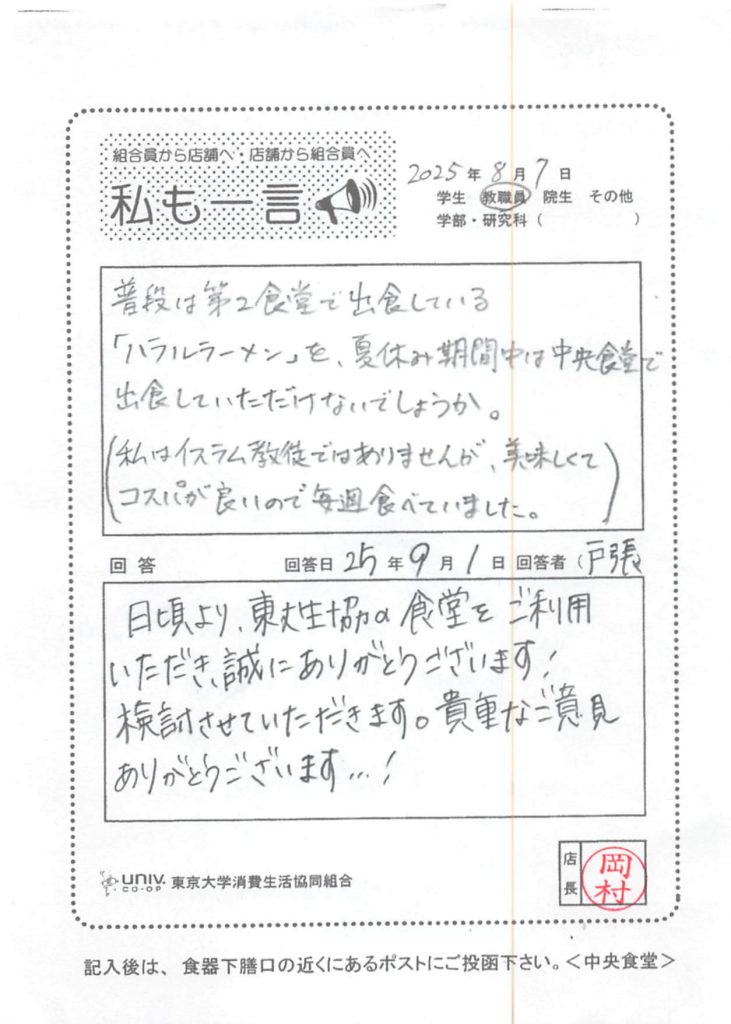 組合員から店舗へ・店舗から組合員へ
私も一言
2025年8月7日
学生 教職員 院生 その他
学部・研究科( )
普段は第2食堂で出食している
「ハラルラーメン」を、夏休み期間中は中央食堂で
出食していただけないでしょうか。
(私はイスラム教徒ではありませんが、美味しくて
コスパが良いので毎週食べていました。)
回答 回答日 25年9月1日 回答者(戸張
日頃より、東大生協の食堂をご利用
いただき、誠にありがとうございます!
検討させていただきます。貴重なご意見
ありがとうございます…!
UNIV. CO-OP 東京大学消費生活協同組合
店長 岡村
記入後は、食器下膳口の近くにあるポストにご投函下さい。<中央食堂>